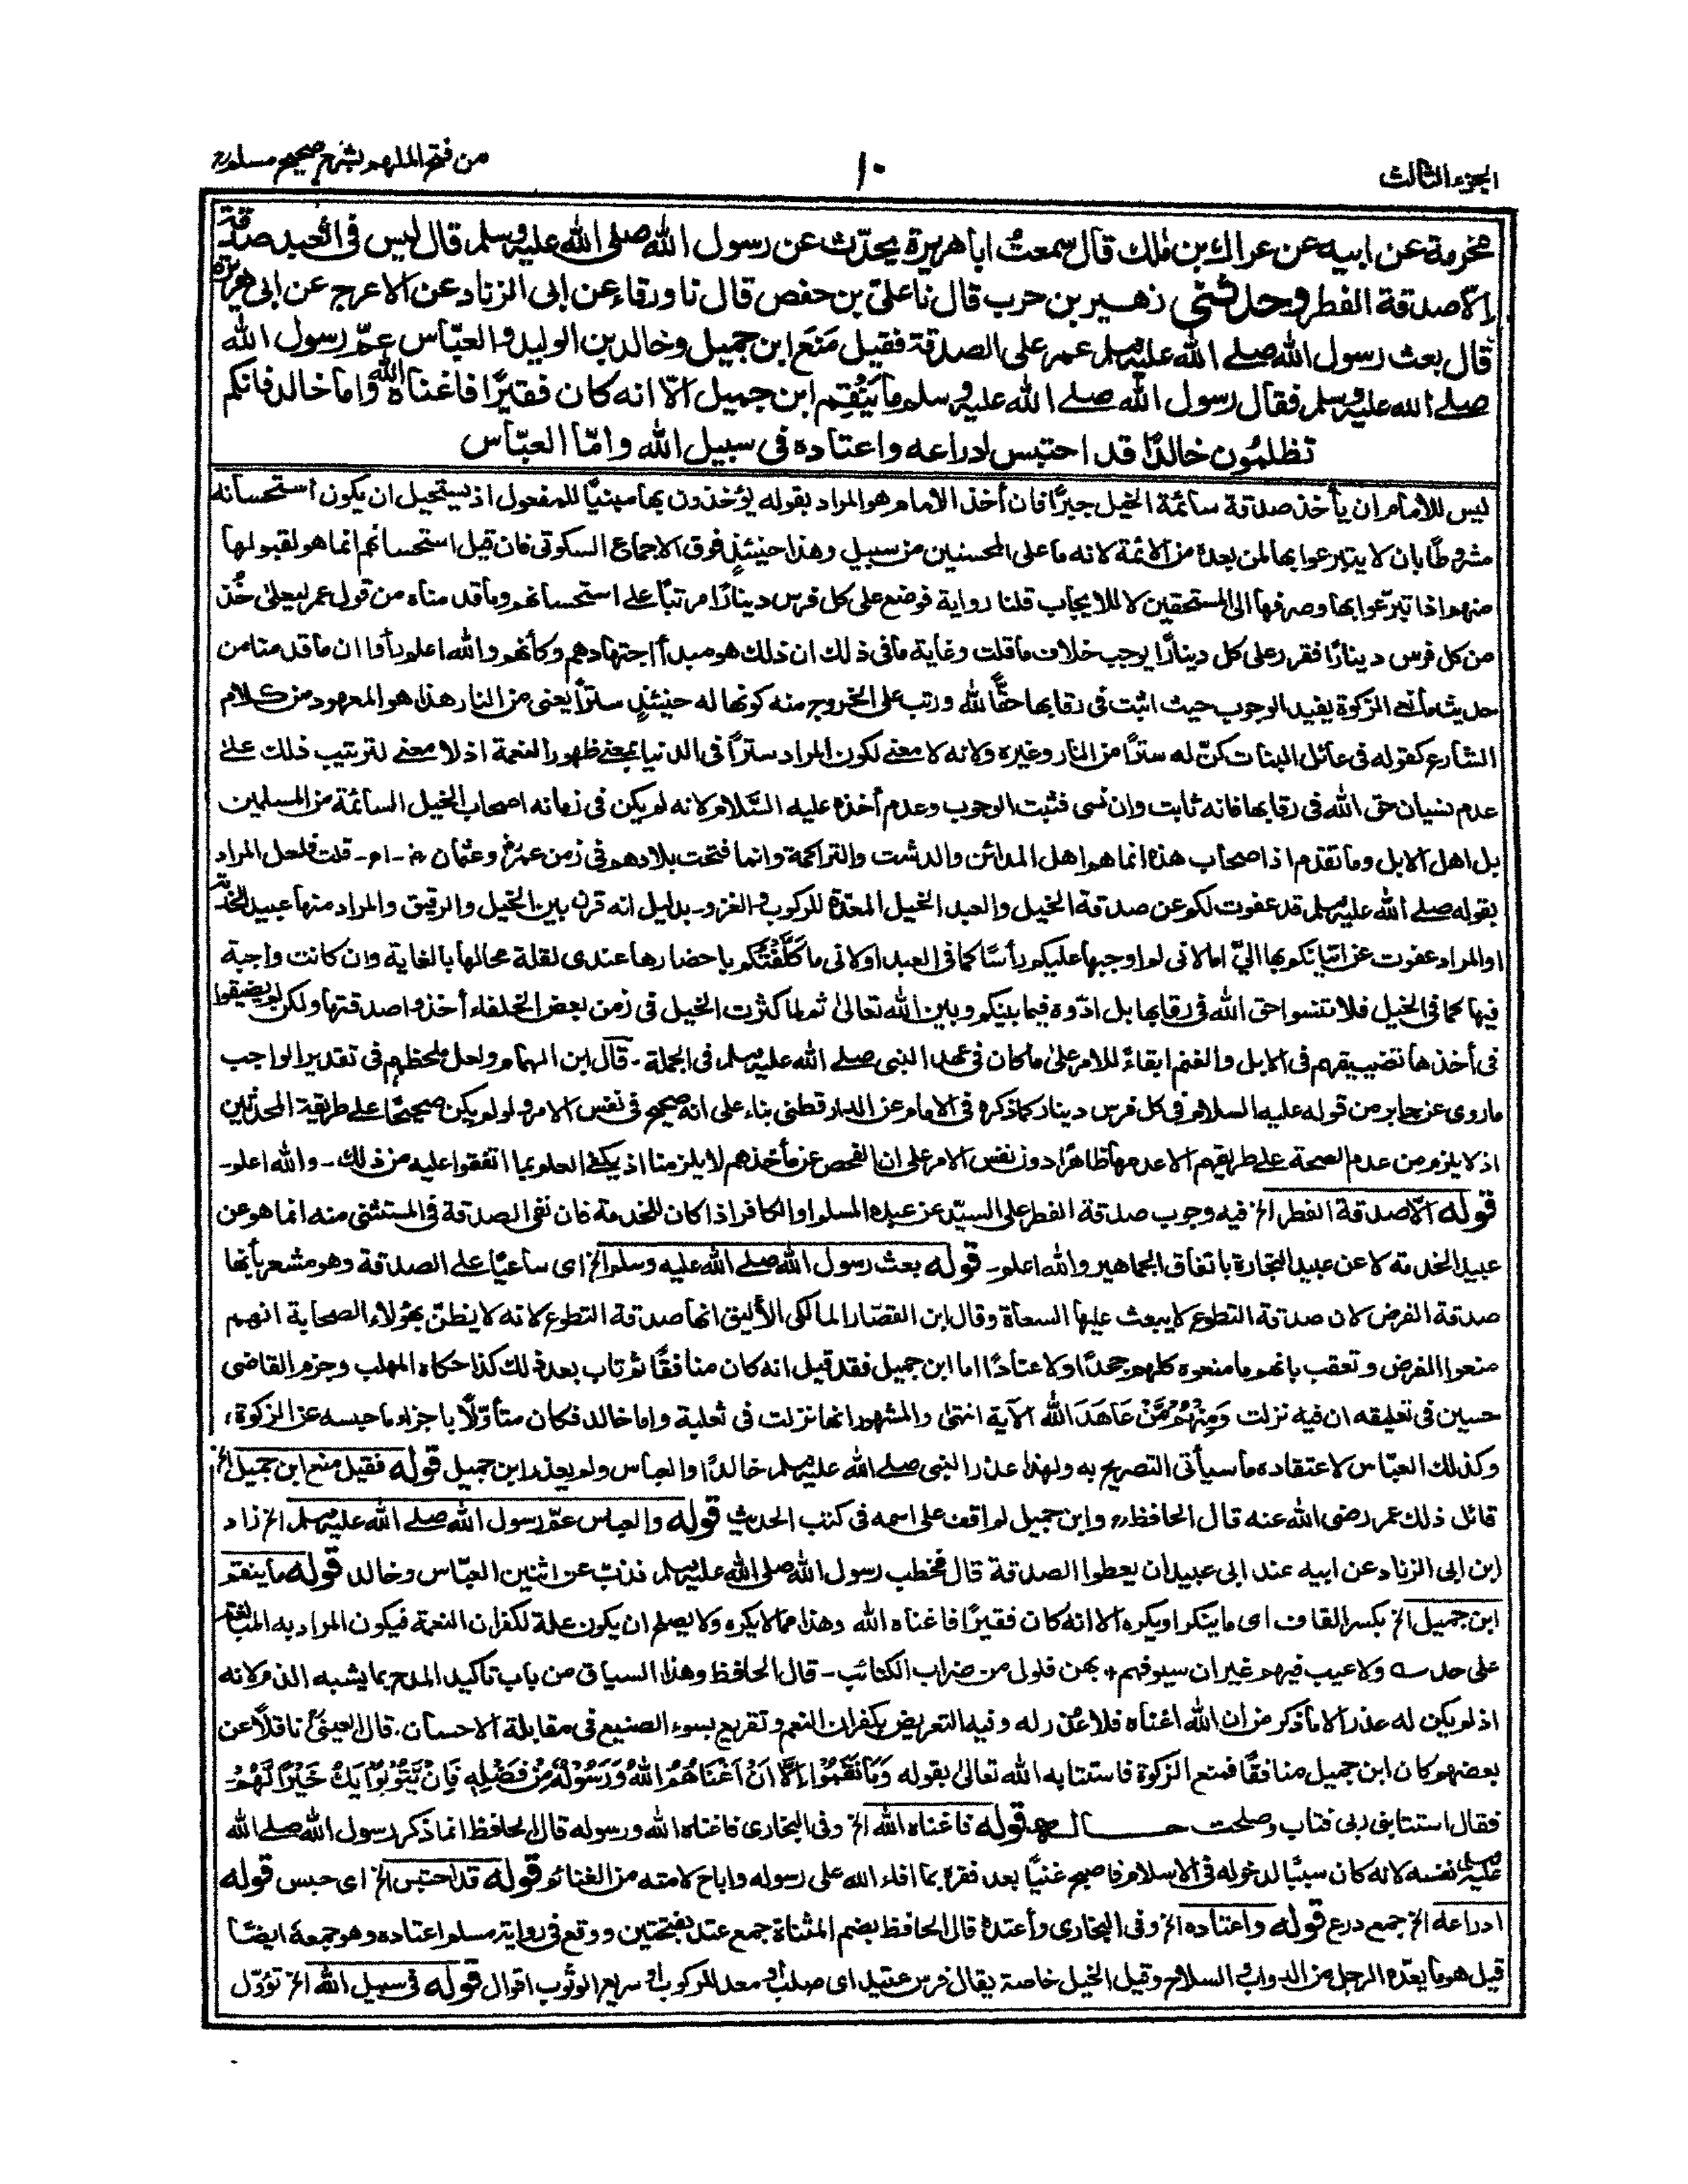 الجزء الثالث
١٠
من فتح الملهم بشرح صحيح مسلم
مخرمة عن ابيه عن عراك بن مٰلك قال سمعتُ ابا هريرة يحدّث عن رسول الله صلى الله عليه وسلم قال ليس فى العبد صدقة
إلّا صدقة الفطر وحدثنى زهير بن حرب قال نا على بن حفص قال نا ورقاء عن ابى الزناد عن الاعرج عن ابى هريرة
قال بعث رسول الله صلے الله عليه وسلم عمر على الصدقة فقيل مَنَعَ ابن جميل وخالد بن الوليد والعبّاس عمّ رسول الله
صلے الله عليه وسلم فقال رسول الله صلے الله عليه وسلم ما يَنْقِم ابن جميل الّا انه كان فقيرًا فاغناه الله واما خالد فانكم
تظلمُون خالدًا قد احتبس ادراعه واعتاده فى سبيل الله وامّا العبّاس
ليس للأمام ان يأخذ صدقة سائمة الخيل جبرًا فان أخذ الامام هو المراد بقوله يؤخذون بها مبنيًّا للمفعول اذ يستحيل ان يكون استحسانه
مشروطًا بان لا يتبرعوا بها لمن بعدهٗ من الائمة لانه ما على المحسنين من سبيل وهذا حينئذٍ فوق الاجماع السكوتى فان قيل استحسانهم انما هو لقبولها
منهم اذا تبرّعوا بها وصرفها الى المستحقين لا للايجاب قلنا رواية فوضع على كل فرس دينارًا مرتبًا على استحسانهم وما قدمناه من قول عمر ليعلىٰ خُذ
من كل فرس دينارًا فقرر على كل دينارًا يوجب خلاف ما قلت وغاية ما فى ذلك ان ذلك هو مبدأ اجتهادهم وكأنهم والله اعلم رأوا ان ما قدمنا من
حديث مانعى الزكوة يفيد الوجوب حيث اثبت فى رقابها حقًّا لله ورتب على الخروج منه كونها له حينئذٍ سترًا يعنى من النار هذا هو المعهود من كلام
الشارع كقوله فى عائل البنات كنّ له سترًا من النار وغيره ولانه لا معنى لكون المراد سترًا فى الدنيا بمعنى ظهور النعمة اذ لا معنى لترتيب ذلك علىٰ
عدم نسيان حق الله فى رقابها فانه ثابت وان نسى فثبت الوجوب وعدم أخذه عليه السّلام لانه لم يكن فى زمانه اصحاب الخيل السائمة من المسلمين
بل اهل الابل وما تقدم اذ اصحاب هذه انما هو اهل المدائن والدشت والتراكمة وانما فتحت بلادهم فى زمن عمر وعثمان رض - اه - قلت فلعل المراد
بقوله صلے الله عليه وسلم قد عفوت لكم عن صدقة الخيل والعبد الخيل المعدّة للركوب والغزو - بدليل انه قرن بين الخيل والرقيق والمراد منها عبيد الخدمة
او المراد عفوت عن اتيانكم بها الىّ اما لانى لم اوجبها عليكم رأسًا كما فى العبد او لانى ما كَلَّفْتُكم باحضارها عندى لقلة محالها بالغاية وان كانت واجبة
فيها كما فى الخيل فلا تنسوا حق الله فى رقابها بل ادّوه فيما بينكم وبين الله تعالىٰ ثم لما كثرت الخيل فى زمن بعض الخلفاء أخذوا صدقتها ولكن لم يضيقوا
فى أخذها تضييقهم فى الابل والغنم ابقاءً للامر علىٰ ما كان فى عهد النبى صلے الله عليه وسلم فى الجملة - قال ابن الهمام ولعل ملحظهم فى تقدير الواجب
ماروى عن جابر من قوله عليه السلام فى كل فرس دينار كما ذكره فى الامام عن الدارقطنى بناء على انه صحيح فى نفس الامر ولو لم يكن صحيحًا على طريقة المحدثين
اذ لا يلزم من عدم الصحة على طريقهم الا عدمها ظاهرًا دون نفس الامر على ان الفحص عن مأخذهم لا يلزمنا اذ يكفى العلم بما اتفقوا عليه من ذلك - والله اعلم -
قوله الّا صدقة الفطر الخ فيه وجوب صدقة الفطر على السيّد عن عبده المسلم او الكافر اذا كان للخدمة فان نفى الصدقة فى المستثنى منه انما هو عن
عبيد الخدمة لا عن عبيد التجارة باتفاق الجماهير والله اعلم - قوله بعث رسول الله صلے الله عليه وسلم الخ اى ساعيًا على الصدقة وهو مشعر بأنها
صدقة الفرض لان صدقة التطوع لا يبعث عليها السعاة وقال ابن القصّار المالكى الأليق انها صدقة التطوع لانه لا يظنّ بهؤلاء الصحابة انهم
منعوا الفرض وتعقب بانهم ما منعوه كلهم جحدًا ولا عنادًا اما ابن جميل فقد قيل انه كان منافقًا ثم تاب بعد ذلك كذا حكاه المهلب وجزم القاضى
حسين فى تعليقه ان فيه نزلت وَمِنْهُمْ مَّنْ عَاهَدَ الله الآية انتهىٰ والمشهور انها نزلت فى ثعلبة واما خالد فكان متأوّلًا باجزاء ما حبسه عن الزكوة،
وكذلك العبّاس لاعتقاده ما سيأتى التصريح به ولهٰذا عذر النبى صلے الله عليه وسلم خالدًا والعباس ولم يعذر ابن جميل قوله فقيل منع ابن جميل الخ
قائل ذلك عمر رضى الله عنه قال الحافظ وابن جميل لم اقف على اسمه فى كتب الحديث قوله والعباس عمّ رسول الله صلے الله عليه وسلم الخ زاد
ابن ابى الزناد عن ابيه عند ابى عبيد ان يعطوا الصدقة قال فخطب رسول الله صلى الله عليه وسلم فذبّ عن اثنين العبّاس وخالد قوله ما ينقم
ابن جميل الخ بكسر القاف اى ما ينكر او يكره الا انه كان فقيرًا فاغناه الله وهذا مما لا يكره ولا يصلح ان يكون علة لكفران النعمة فيكون المراد به المبالغة
على حد سه ولا عيب فيهم غير ان سيوفهم ٭ بهن فلول من ضراب الكتائب - قال الحافظ وهذا السياق من باب تأكيد المدح بما يشبه الذم لانه
اذ لم يكن له عذر الا ما ذكر من ان الله اغناه فلا عُذر له وفيه التعريض بكفران النعم وتقريع بسوء الصنيع فى مقابلة الاحسان، قال العينىؒ ناقلًا عن
بعضهم كان ابن جميل منافقًا فمنع الزكوة فاستتابه الله تعالىٰ بقوله وَمَا نَقَمُوْا اِلَّا اَنْ اَغْنَاهُمُ اللهُ وَرَسُوْلُهٗ مِنْ فَضْلِهٖ فَاِنْ يَّتُوْبُوْا يَكُ خَيْرًا لَّهُمْ
فقال استتابنى ربى فتاب وصلحت حـــالـه قوله فاغناه الله الخ وفى البخارى فاغناه الله ورسوله قال الحافظ انما ذكر رسول الله صلے الله
عليه وسلم نفسه لانه كان سببًا لدخوله فى الاسلام فاصبح غنيًّا بعد فقره بما افاء الله على رسوله واباح لامته من الغنائم قوله قد احتبس الخ اى حبس قوله
ادراعه الخ جمع درع قوله واعتاده الخ وفى البخارى وأعتدهٗ قال الحافظ بضم المثناة جمع عتد بفتحتين ووقع فى رواية مسلم اعتاده وهو جمعهٗ ايضًا
قيل هو ما يعدّه الرجل من الدواب والسلاح وقيل الخيل خاصة يقال فرس عتيد اى صلب او معد للركوب او سريع الوثوب اقوال قوله فى سبيل الله الخ تؤوّل